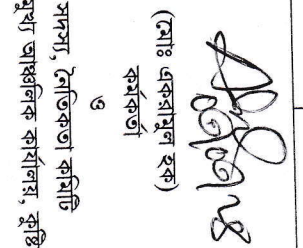 (মোঃ একরামুল হক)
কর্মকর্তা
ও
সদস্য, নৈতিকতা কমিটি
মুখ্য আঞ্চলিক কার্যালয়, কুষ্টি